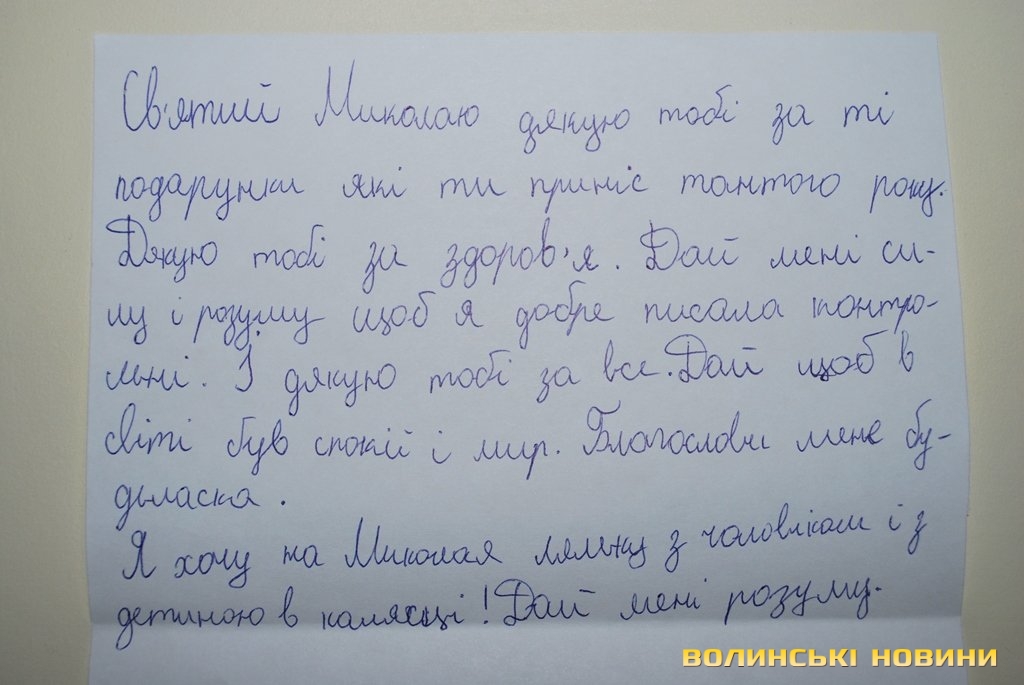 Св'ятий Миколаю дякую тобі за ті
подарунки які ти приніс тамтого року.
Дякую тобі за здоров'я. Дай мені си-
лу і розуму щоб я добре писала контро-
льні. І дякую тобі за все. Дай щоб в
світі був спокій і мир. Благослови мене бу-
дьласка.
Я хочу на Миколая ляльку з чоловіком і з
детиною в калясці! Дай мені розуму.
ВОЛИНСЬКІ НОВИНИ